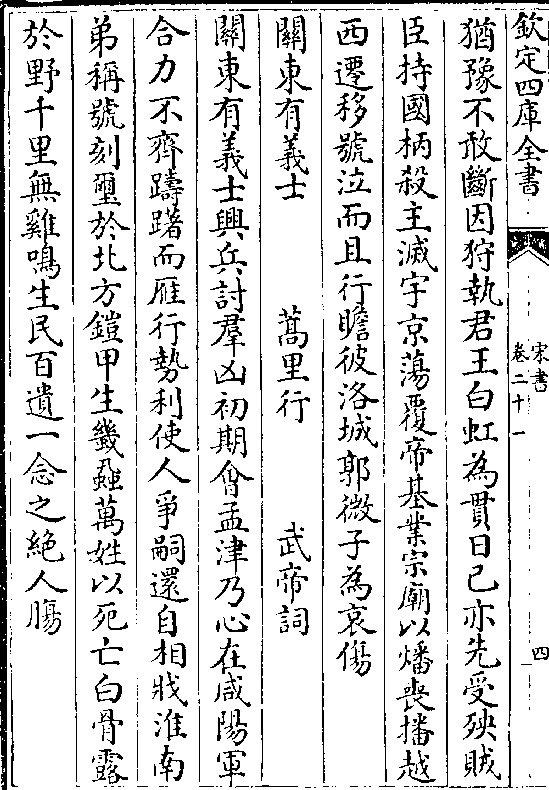 欽定四庫全書
宋書
卷二十一
四
猶豫不敢斷因狩執君王白虹為貫日己亦先受殃賊
臣持國柄殺主滅宇京蕩覆帝基業宗廟以燔喪播越
西遷移號泣而且行瞻彼洛城郭微子為哀傷
關東有義士 蒿里行 武帝詞
關東有義士興兵討羣凶初期會孟津乃心在咸陽軍
合力不齊躊躇而雁行勢利使人爭嗣還自相戕淮南
弟稱號刻璽於北方鎧甲生蟣蝨萬姓以死亡白骨露
於野千里無雞鳴生民百遺一念之絶人腸